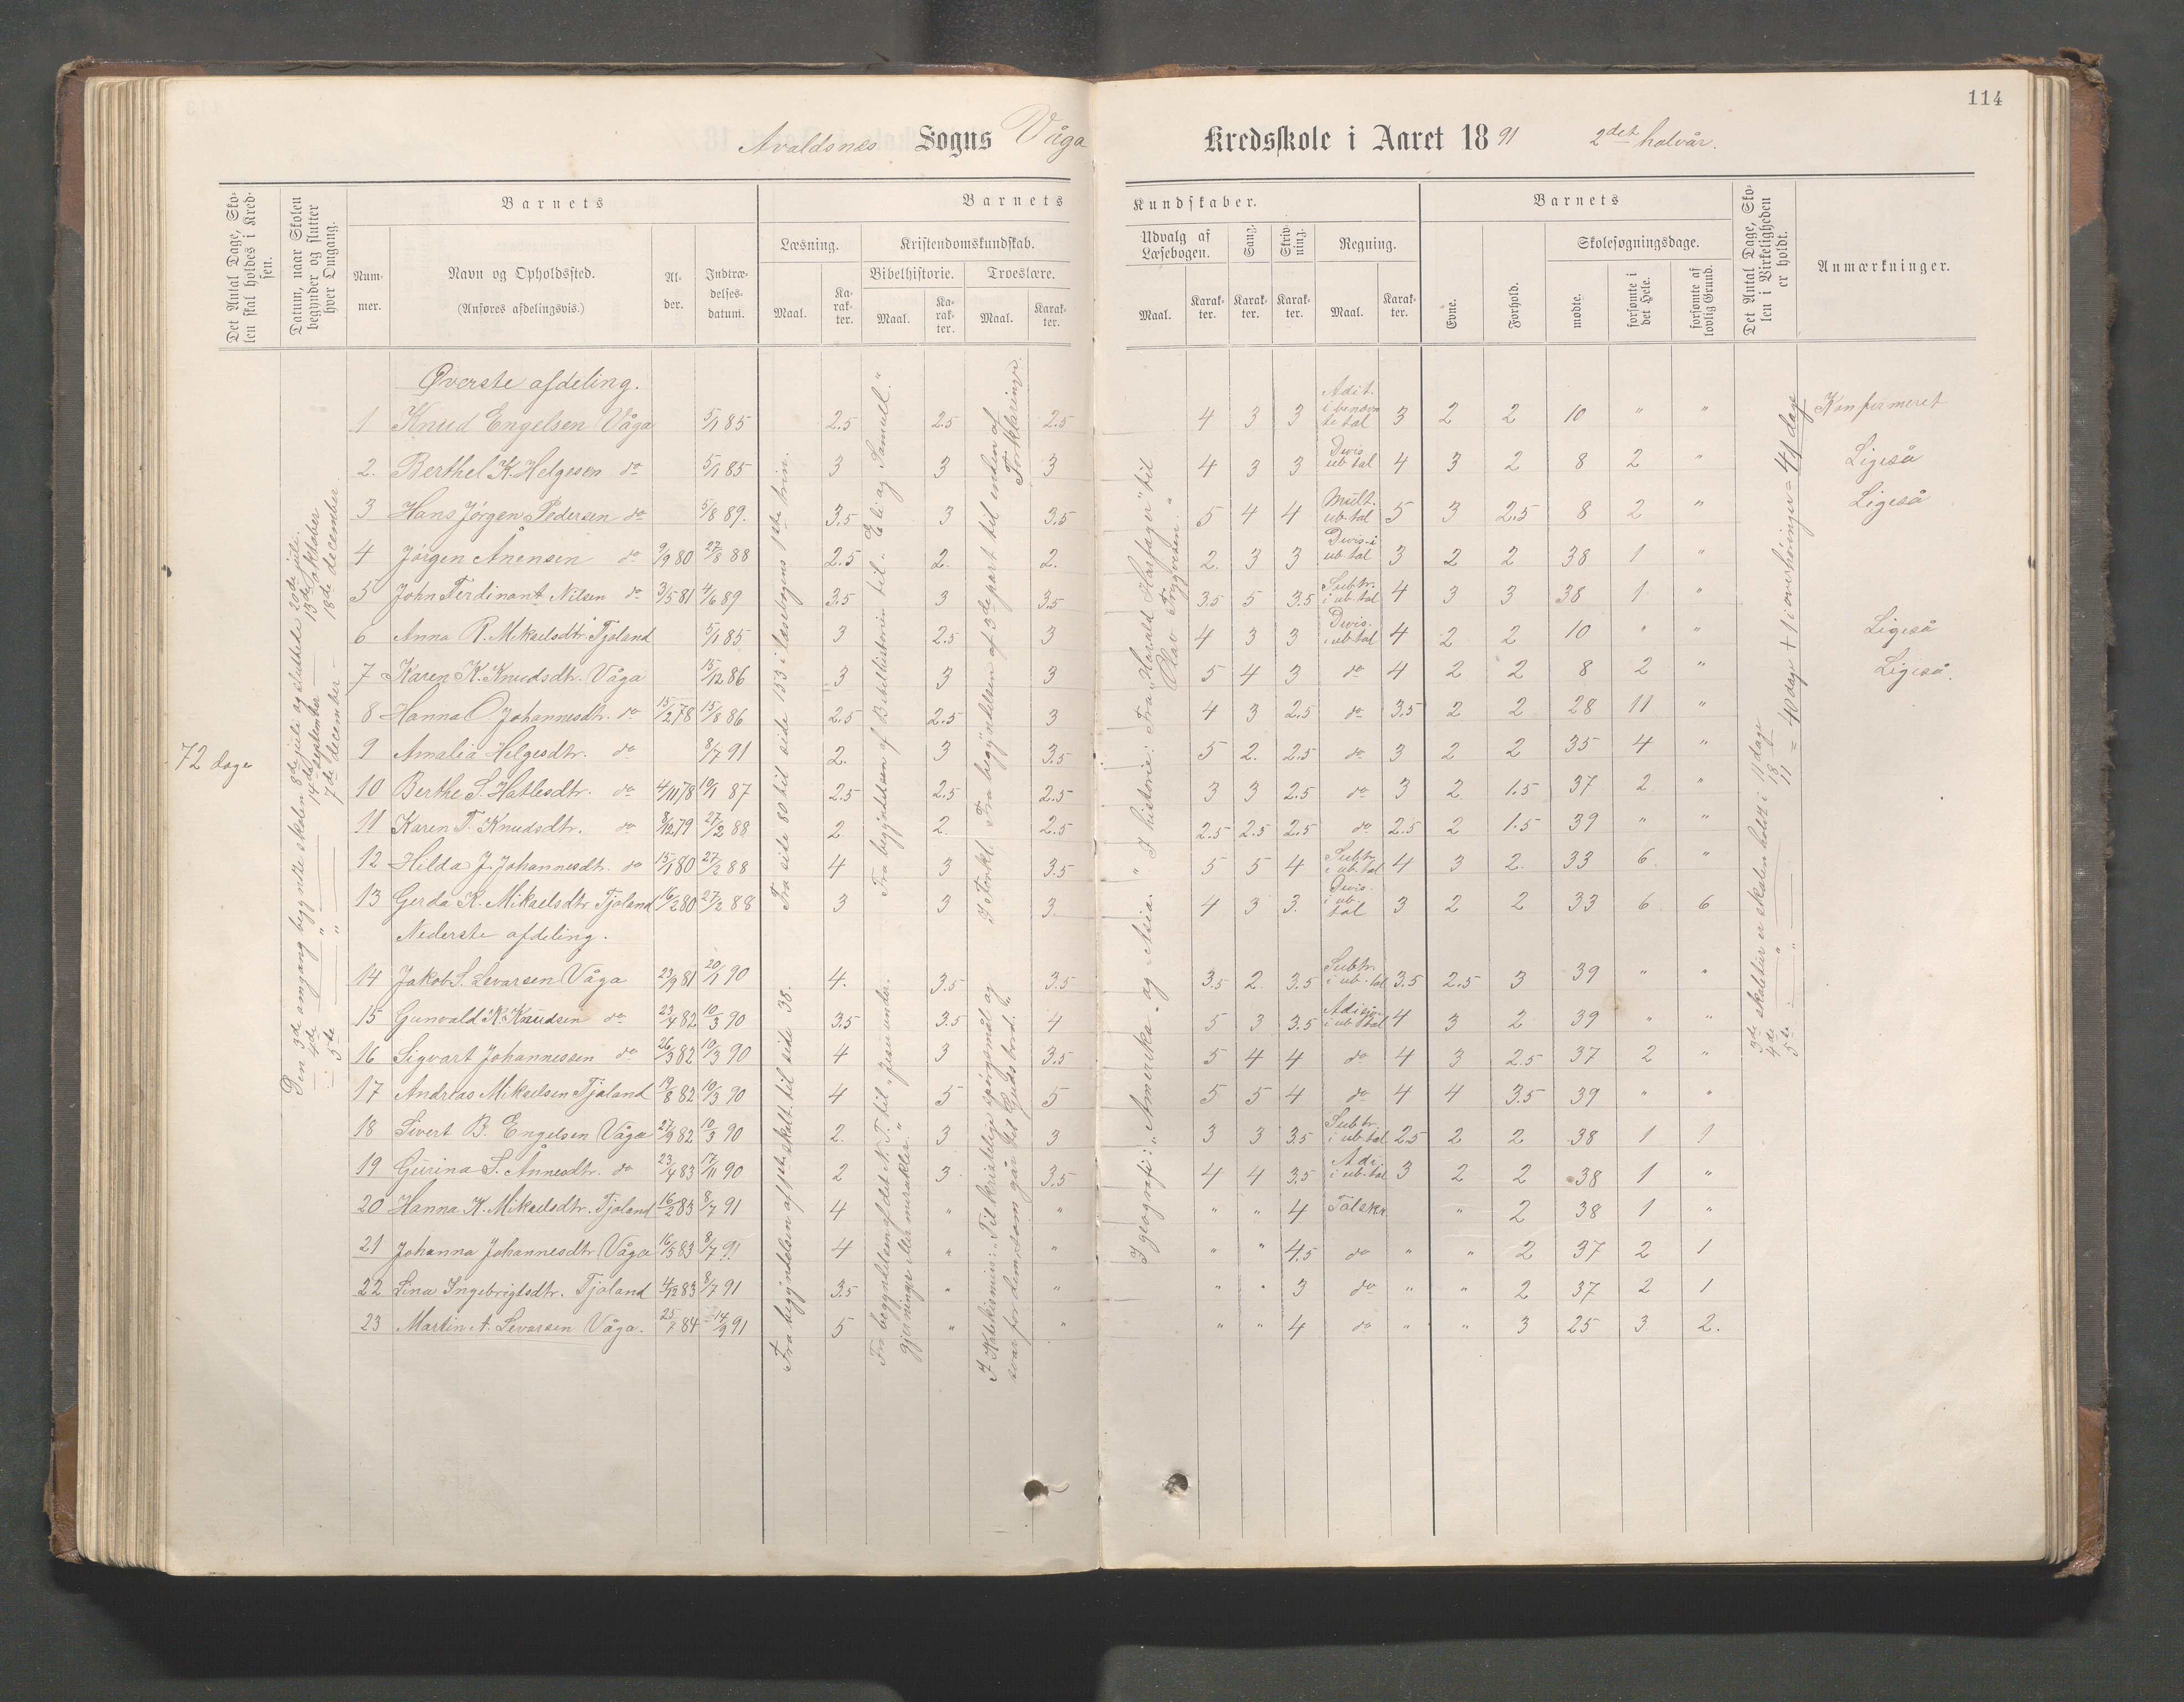 114
Avaldsnæs Sogns Våga Kredsskole i Aaret 1891 2det halvår.
Det Antal Dage, Skolen skal holdes i Kredsen.
Datum, naar Skolen begynder og slutter hver Omgang.
Barnets
Barnets Kundskaber.
Barnets
Det Antal Dage, Skolen i Virkeligheden er holdt.
Anmærkninger.
Nummer.
Navn og Opholdssted.
(Anføres afdelingsvis.)
Alder.
Indtrædelsesdatum.
Læsning.
Kristendomskundskab.
Udvalg af Læsebogen.
Sang.
Skrivning.
Regning.
Evne.
Forhold.
Skolesøgningsdage.
Bibelhistorie.
Troeslære.
Maal. Karakter. Maal. Karakter. Maal. Karakter. Maal. Karakter. Karakter. Karakter. Maal. Karakter.
mødte. forsømte i det Hele. forsømte af lovlig Grund.
72 dage
Den 3de omgang begyntte skolen 8de juli og sluttede 20de juli.
" 4de " 14de september 13de oktober
" 5te " 7de december 18de december.
Øverste afdeling.
1 Knud Engelsen Våga 5/1 85 2.5 2.5 2.5 4 3 3 Adit. i benævnte tal 3 2 2 10 " " Konfirmeret
2. Berthel K. Helgesen do 5/1 85 3 3 3 4 3 3 Divis ub tal 4 3 2 8 2 " Ligeså
3 Hans Jørgen Pedersen do 5/8 89. 3.5 3 3.5 5 4 4 Mult. ub. tal 5 3 2.5 8 2 " Ligeså
4 Jørgen Ånensen do 9/9 80 27/8 88 2.5 2. 2. 2. 3 3 Divis. i ub. tal 3 2 2 38 1 "
5 John Ferdinant Nilsen do 3/5 81 4/6 89 3.5 3 3.5 3.5 5 3.5 Subtr. i ub. tal 4 3 3 38 1 "
6 Anna R. Mikaelsdtr. Tjøland 5/1 85. 3 2.5 3 4 3 3 Divis. i ub tal 4 2 2 10 " " Ligeså
7 Karen K. Knudsdtr. Våga 15/12 86 3 3 3 5 4 3 do 4 2 2 8 2 " Ligeså.
8 Hanna O. Johannesdtr. do 15/2 78 15/8 86 2.5 2.5 3 4 3 2.5 do 3.5 2 2 28 11 "
9 Amalia Helgesdtr. do 8/7 91 2. 3 3.5 5 2. 2.5 do 3 2 2 35 4 "
10 Berthe S. Hatlesdtr. do 4/11 78 19/1 87 2.5 2.5 2.5 3 3 2.5 do 3 2 1.5 37 2 "
11 Karen T. Knudsdtr. do 8/12 79 27/2 88 2. 2. 2.5 2.5 2.5 2.5 do 2.5 2 1.5 39 " "
12 Hilda J. Johannesdtr. do 15/1 80 27/2 88 4 3 3.5 5 5 4 Subtr. i ub. tal 4 3 2. 33 6 "
13 Gerda K. Mikaelsdtr Tjøland 16/2 80 27/2 88 3 3 3. 4 3 3. Divis. i ub. tal 3 2 2 33 6 6
Nederste afdeling.
14 Jakob S. Levarsen Våga 23/9 81 20/1 90 4. 3.5 3.5 3.5 2. 3.5 Subtr. i ub. tal 3.5 2.5 3 39 " "
15 Gunvald K. Knudsen do 23/4 82 10/3 90 3.5 3.5 4 5 3 3.5 Adisjo. i ub tal 4 3 2 39 " "
16 Sigvart Johannessen do 26/3 82 10/3 90 4 3 3.5 5 4 4 do 4 3 2.5 37 2 "
17 Andreas Mikaelsen Tjøland 19/8 82 10/3 90 4 5 5 5 5 4 do 4 4 3.5 39 " "
18 Sivert B. Engelsen Våga 27/9 82 10/3 90 2. 3 3 3 3 3.5 Subtr. i ub. tal 2.5 2 2 38 1 1
19 Gurina S. Ånnesdtr. do 23/4 83 17/11 90 2 3 3.5 4 4 3.5 Adi. i ub. tal 3 2 2 38 1 "
20 Hanna K. Mikaelsdtr. Tjøland 16/2 83 8/7 91 4 " " " " 4 Talskr " 2 38 1 "
21 Johanna Johannesdtr Våga 16/5 83 8/7 91 4 " " " " 4.5 do " " 2 37 2 1
22 Lina Ingebrigtsdtr. Tjøland 4/12 83 8/7 91 3.5 " " " " 3 do " " 2 37 2 1
23 Martin A. Levarsen Våga. 25/7 84 14/9 91 5 " " " " 4 do " " 3 25 3 2.
Fra side 80 til side 153 i læsebogens 1ste trin.
Fra begyndelsen af Bibelhistorien til „Eli og Samuel."
I Forkl. Fra begyndelsen af 3de part til enden af Forklaringe
Fra begyndelsen af 1ste skolt. til side 38.
Fra begyndelsen af det N. T. til „Jesu under-
gjerninger eller mirakler."
I Katekismus: „Til kristelige spørgsmål og
svar for dem, som går til Guds bord."
I geografi: „Amerika" og „Asia." I historie: Fra „Harald Hårfager" til
„Olav Trygvesen."
3de skoletur er skolen holdt i 11 dage
4de " 18 "
5te " 11 = 40 dage + 1 i overhøringe = 41 dage